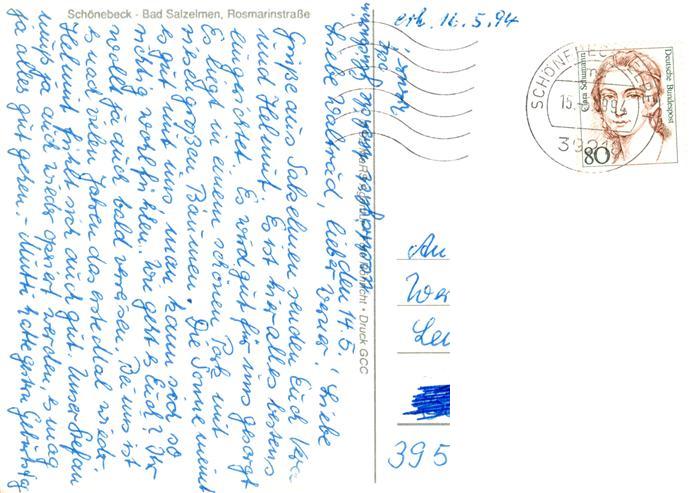 Schönebeck - Bad Salzelmen, Rosmarinstraße
erh. 16.5.94
den 14.5.
Liebe Waltraud, lieber Werner! Liebe
Grüße aus Salzelmen senden Euch Vera
und Helmut. Es ist hier alles bestens
eingerichtet. Es wird gut für uns gesorgt
Es liegt in einem schönen Park mit
riesengroßen Bäumen. Die Sonne meint
es gut mit uns, man kann sich so
richtig wohl fühlen. Wie geht es Euch? Ihr
wollt ja auch bald verreisen. Bei uns ist
es nach vielen Jahren das erste Mal wieder.
Helmut fühlt sich auch gut. Unser Stefan
muß ja auch wieder operiert werden, es mag
ja alles gut gehen. - Mutti hatte gestern Geburtstag
Druck GCC
SCHÖNEBECK
15.
39218
Clara Schumann
Deutsche Bundespost
80
An
Wer
Lei
395